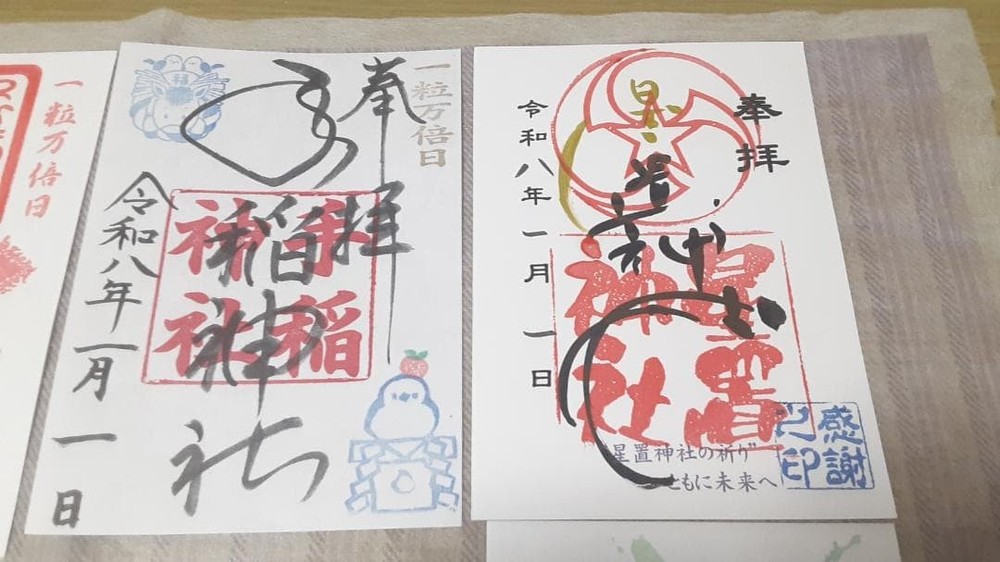 一粒万倍日
一粒万倍日
奉拝
手稲神社
手稲
神社
令和八年一月一日
奉拝
星置
神社
令和八年一月一日
星置神社の祈り
ともに未来へ
感謝
印